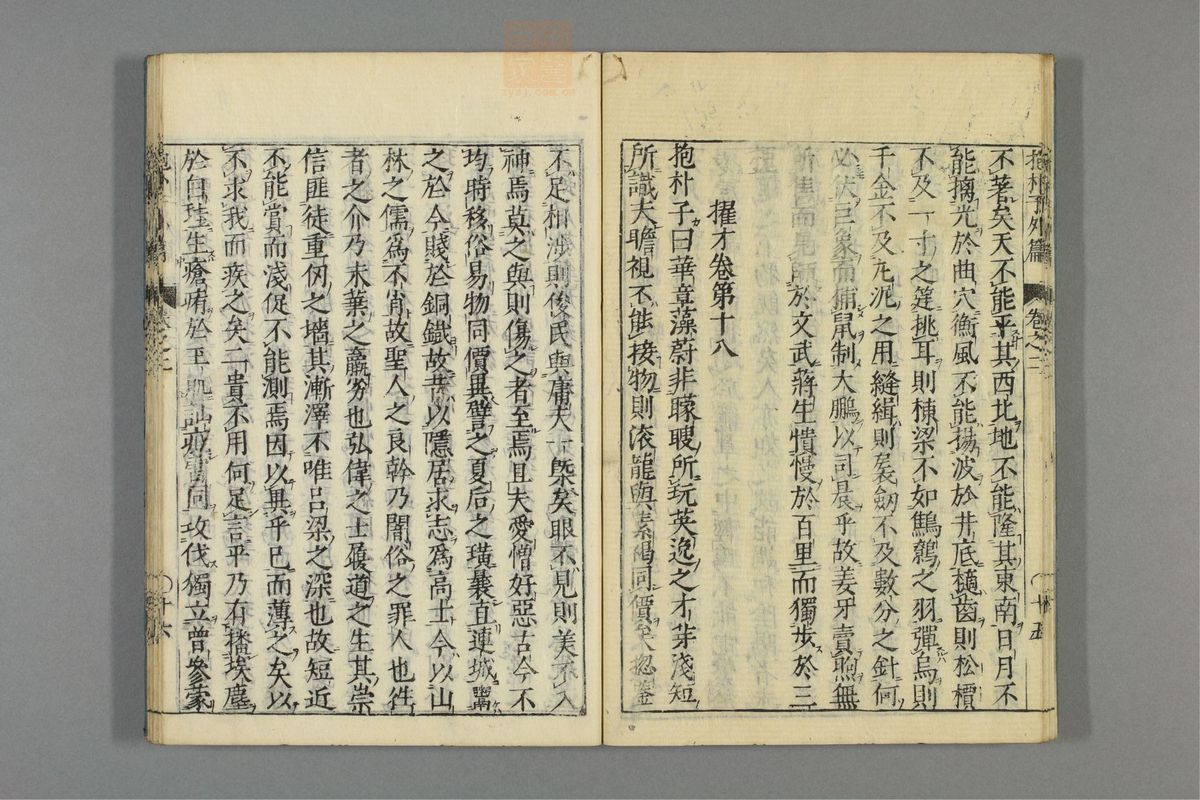 抱朴子外篇 卷之二 廿五
不著矣天不能平其西北地不能隆其東南日月不
能摛光於曲穴衝風不能揚波於井底擿齒則松檟
不及一寸之筳挑耳則棟梁不如鷦鷯之羽彈鳥則
千金不及丸泥之用縫緝則長劒不及數分之針何
必伏巨象而捕鼠制大鵬以司晨乎故姜牙賣煦無
所售而見 於文武蔣生憒慢於百里而獨步於三
擢才卷第十八
抱朴子曰華章藻蔚非矇瞍所玩英逸之才非淺短
所識夫瞻視不能接物則滚龍與素褐同價矣揔鑒
不足相涉則俊民與庸夫一槩矣眼不見則美不入
神焉莫之與則傷之者至焉且夫愛憎好惡古今不
均時移俗易物同價異譬之夏后之璜曩直連城鬻
之於今賤於銅鐵故昔以隱居求志爲高士今以山
林之儒爲不肖故聖人之良幹乃闇俗之罪人也徃
者之介乃末葉之羸劣也弘偉之士履道之生其崇
信匪徒重仞之墻其漸澤不唯呂梁之深也故短近
不能賞而淺促不能測焉因以異乎已而薄之矣以
不求我而疾之矣二貴不用何足言乎乃有播埃塵
於白珪生瘡痏於玉肌訕 雷同攻伐獨立曾參蒙
卷之二 廿六